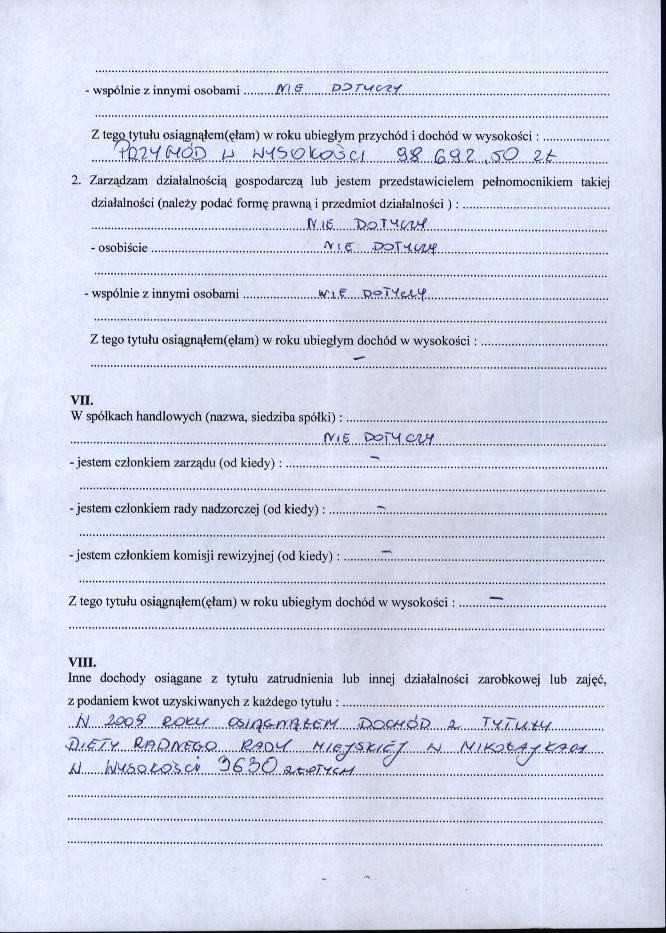 - wspólnie z innymi osobami ..........NIE DOTYCZY..........
Z tego tytułu osiągnąłem(ęłam) w roku ubiegłym przychód i dochód w wysokości : ..........
PRZYCHÓD W WYSOKOŚCI 98 692,50 ZŁ
2. Zarządzam działalnością gospodarczą lub jestem przedstawicielem pełnomocnikiem takiej
działalności (należy podać formę prawną i przedmiot działalności ) : ..........
NIE DOTYCZY
- osobiście ..........NIE DOTYCZY..........
- wspólnie z innymi osobami ..........NIE DOTYCZY..........
Z tego tytułu osiągnąłem(ęłam) w roku ubiegłym dochód w wysokości : ..........
–
VII.
W spółkach handlowych (nazwa, siedziba spółki) : ..........
NIE DOTYCZY
- jestem członkiem zarządu (od kiedy) : ..........–..........
- jestem członkiem rady nadzorczej (od kiedy) : ..........–..........
- jestem członkiem komisji rewizyjnej (od kiedy) : ..........–..........
Z tego tytułu osiągnąłem(ęłam) w roku ubiegłym dochód w wysokości : ..........–..........
VIII.
Inne dochody osiągane z tytułu zatrudnienia lub innej działalności zarobkowej lub zajęć,
z podaniem kwot uzyskiwanych z każdego tytułu : ..........
W 2009 ROKU OSIĄGNĄŁEM DOCHÓD Z TYTUŁU
DIETY RADNEGO RADY MIEJSKIEJ W MIKOŁAJKACH
W WYSOKOŚCI 9630 ZŁOTYCH